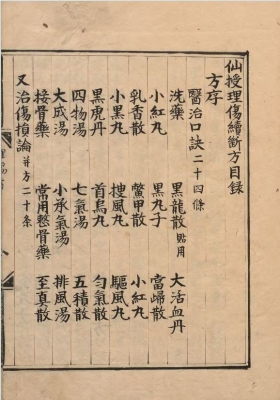 仙授理傷續斷方目錄
方序
醫治口訣二十四條
洗藥 黑龍散貼用 大活血丹
小紅丸 黑丸子 當歸散
乳香散 鱉甲散 小紅丸
小黑丸 搜風丸 驅風丸
黑虎丹 首烏丸 勻氣散
四物湯 七氣湯 五積散
大成湯 小承氣湯 排風湯
接骨藥 常用整骨藥 至真散
又治傷損論并方二十條